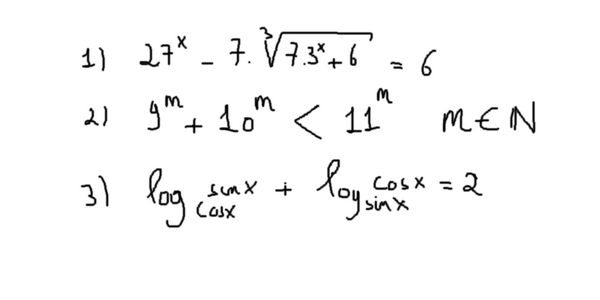 1) 27ˣ - 7.∛(7.3ˣ+6) = 6
2) 9ᵐ + 10ᵐ < 11ᵐ m∈ℕ
3) log_cosx sinx + log_sinx cosx = 2